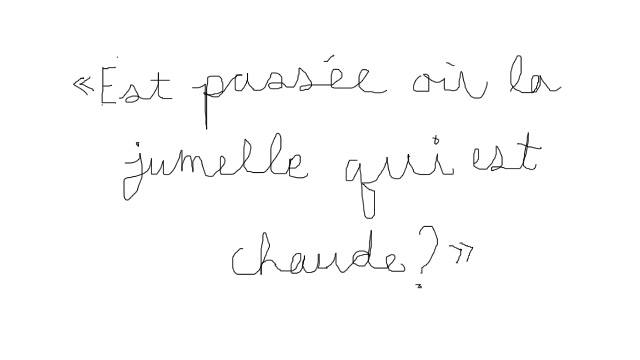 «Est passée où la
jumelle qui est
chaude?»